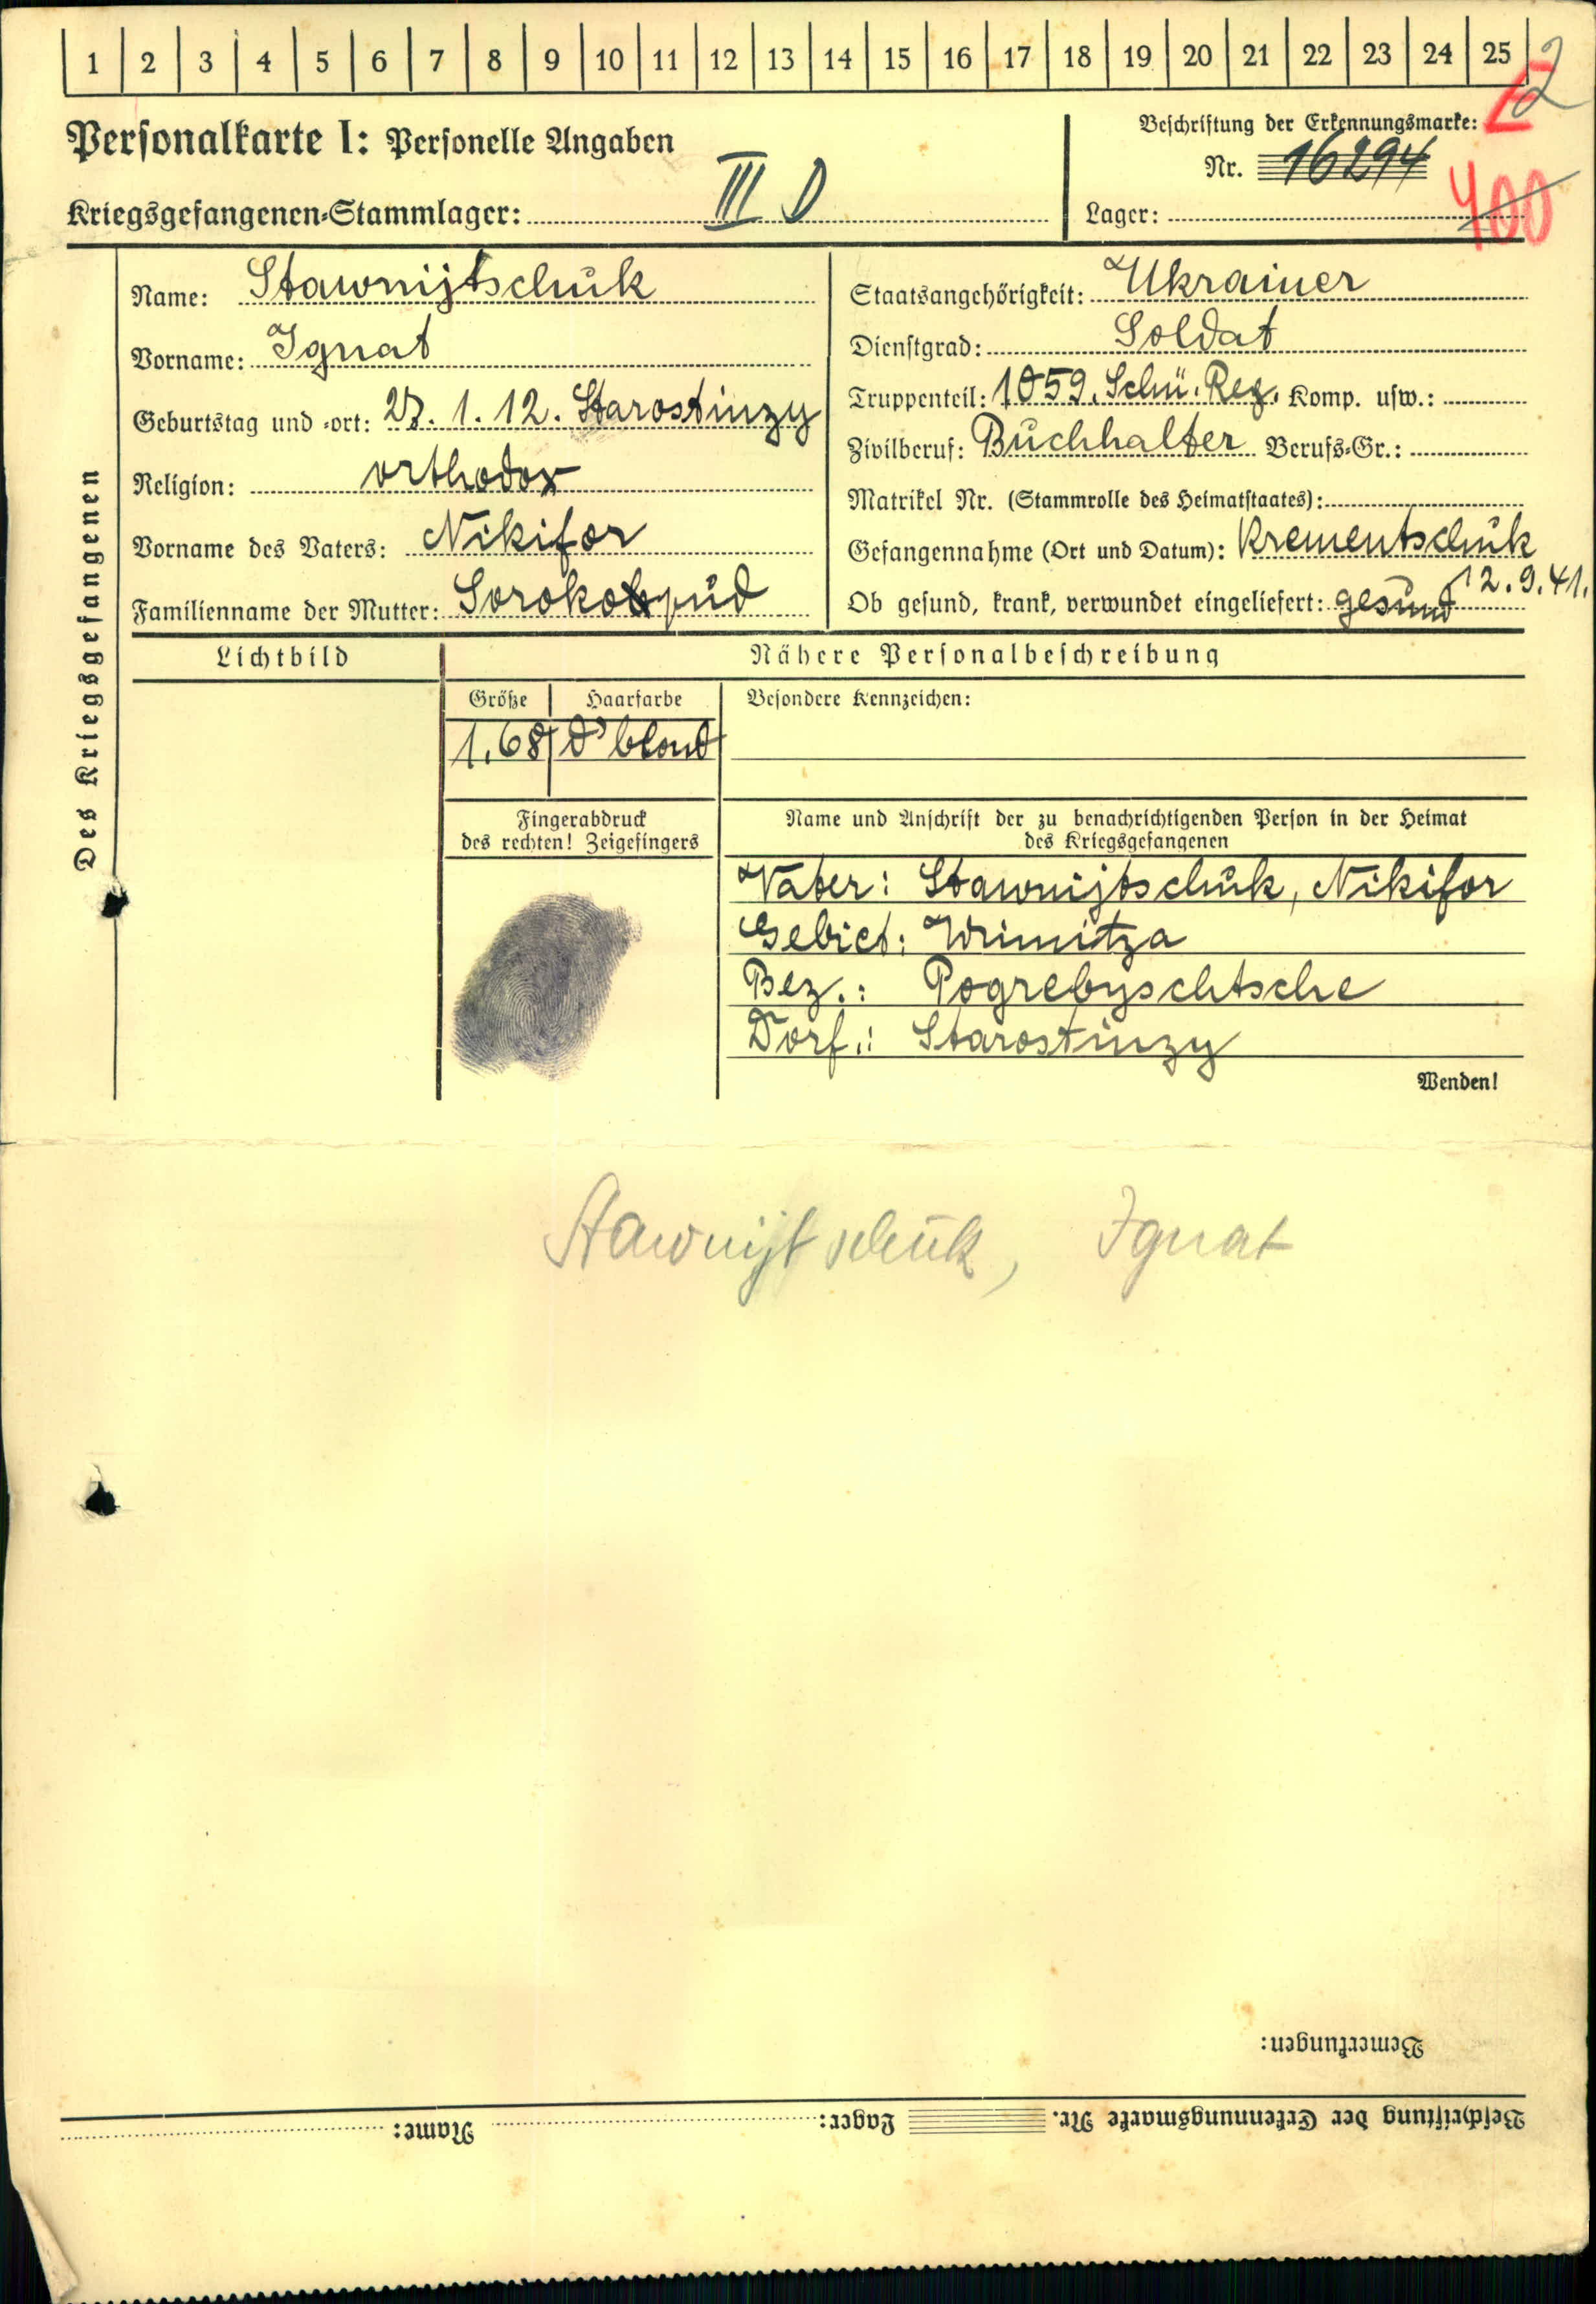 1 2 3 4 5 6 7 8 9 10 11 12 13 14 15 16 17 18 19 20 21 22 23 24 25
2
Personalkarte I: Personelle Angaben
Beschriftung der Erkennungsmarke:
Nr. 16294
400
Kriegsgefangenen-Stammlager: III D
Lager:
Des Kriegsgefangenen
Name: Stawnijtschuk
Vorname: Ignat
Geburtstag und -ort: 27. 1. 12. Starostinzy
Religion: orthodox
Vorname des Vaters: Nikifor
Familienname der Mutter:
Staatsangehörigkeit: Ukrainer
Dienstgrad: Soldat
Truppenteil: 1059. Schü. Reg. Komp. usw.:
Zivilberuf: Buchhalter Berufs-Gr.:
Matrikel Nr. (Stammrolle des Heimatstaates):
Gefangennahme (Ort und Datum): Krementschuk
12.9.41.
Ob gesund, krank, verwundet eingeliefert: gesund
Lichtbild
Nähere Personalbeschreibung
Größe Haarfarbe Besondere Kennzeichen:
1.68 d'blond
Fingerabdruck
des rechten! Zeigefingers
Name und Anschrift der zu benachrichtigenden Person in der Heimat
des Kriegsgefangenen
Vater: Stawnijtschuk, Nikifor
Gebiet: Winnitza
Bez.: Pogrebyschtsche
Dorf.: Starostinzy
Wenden!
Stawnijtschuk, Ignat
Bemerkungen:
Beschriftung der Erkennungsmarke Nr. Lager: Name: